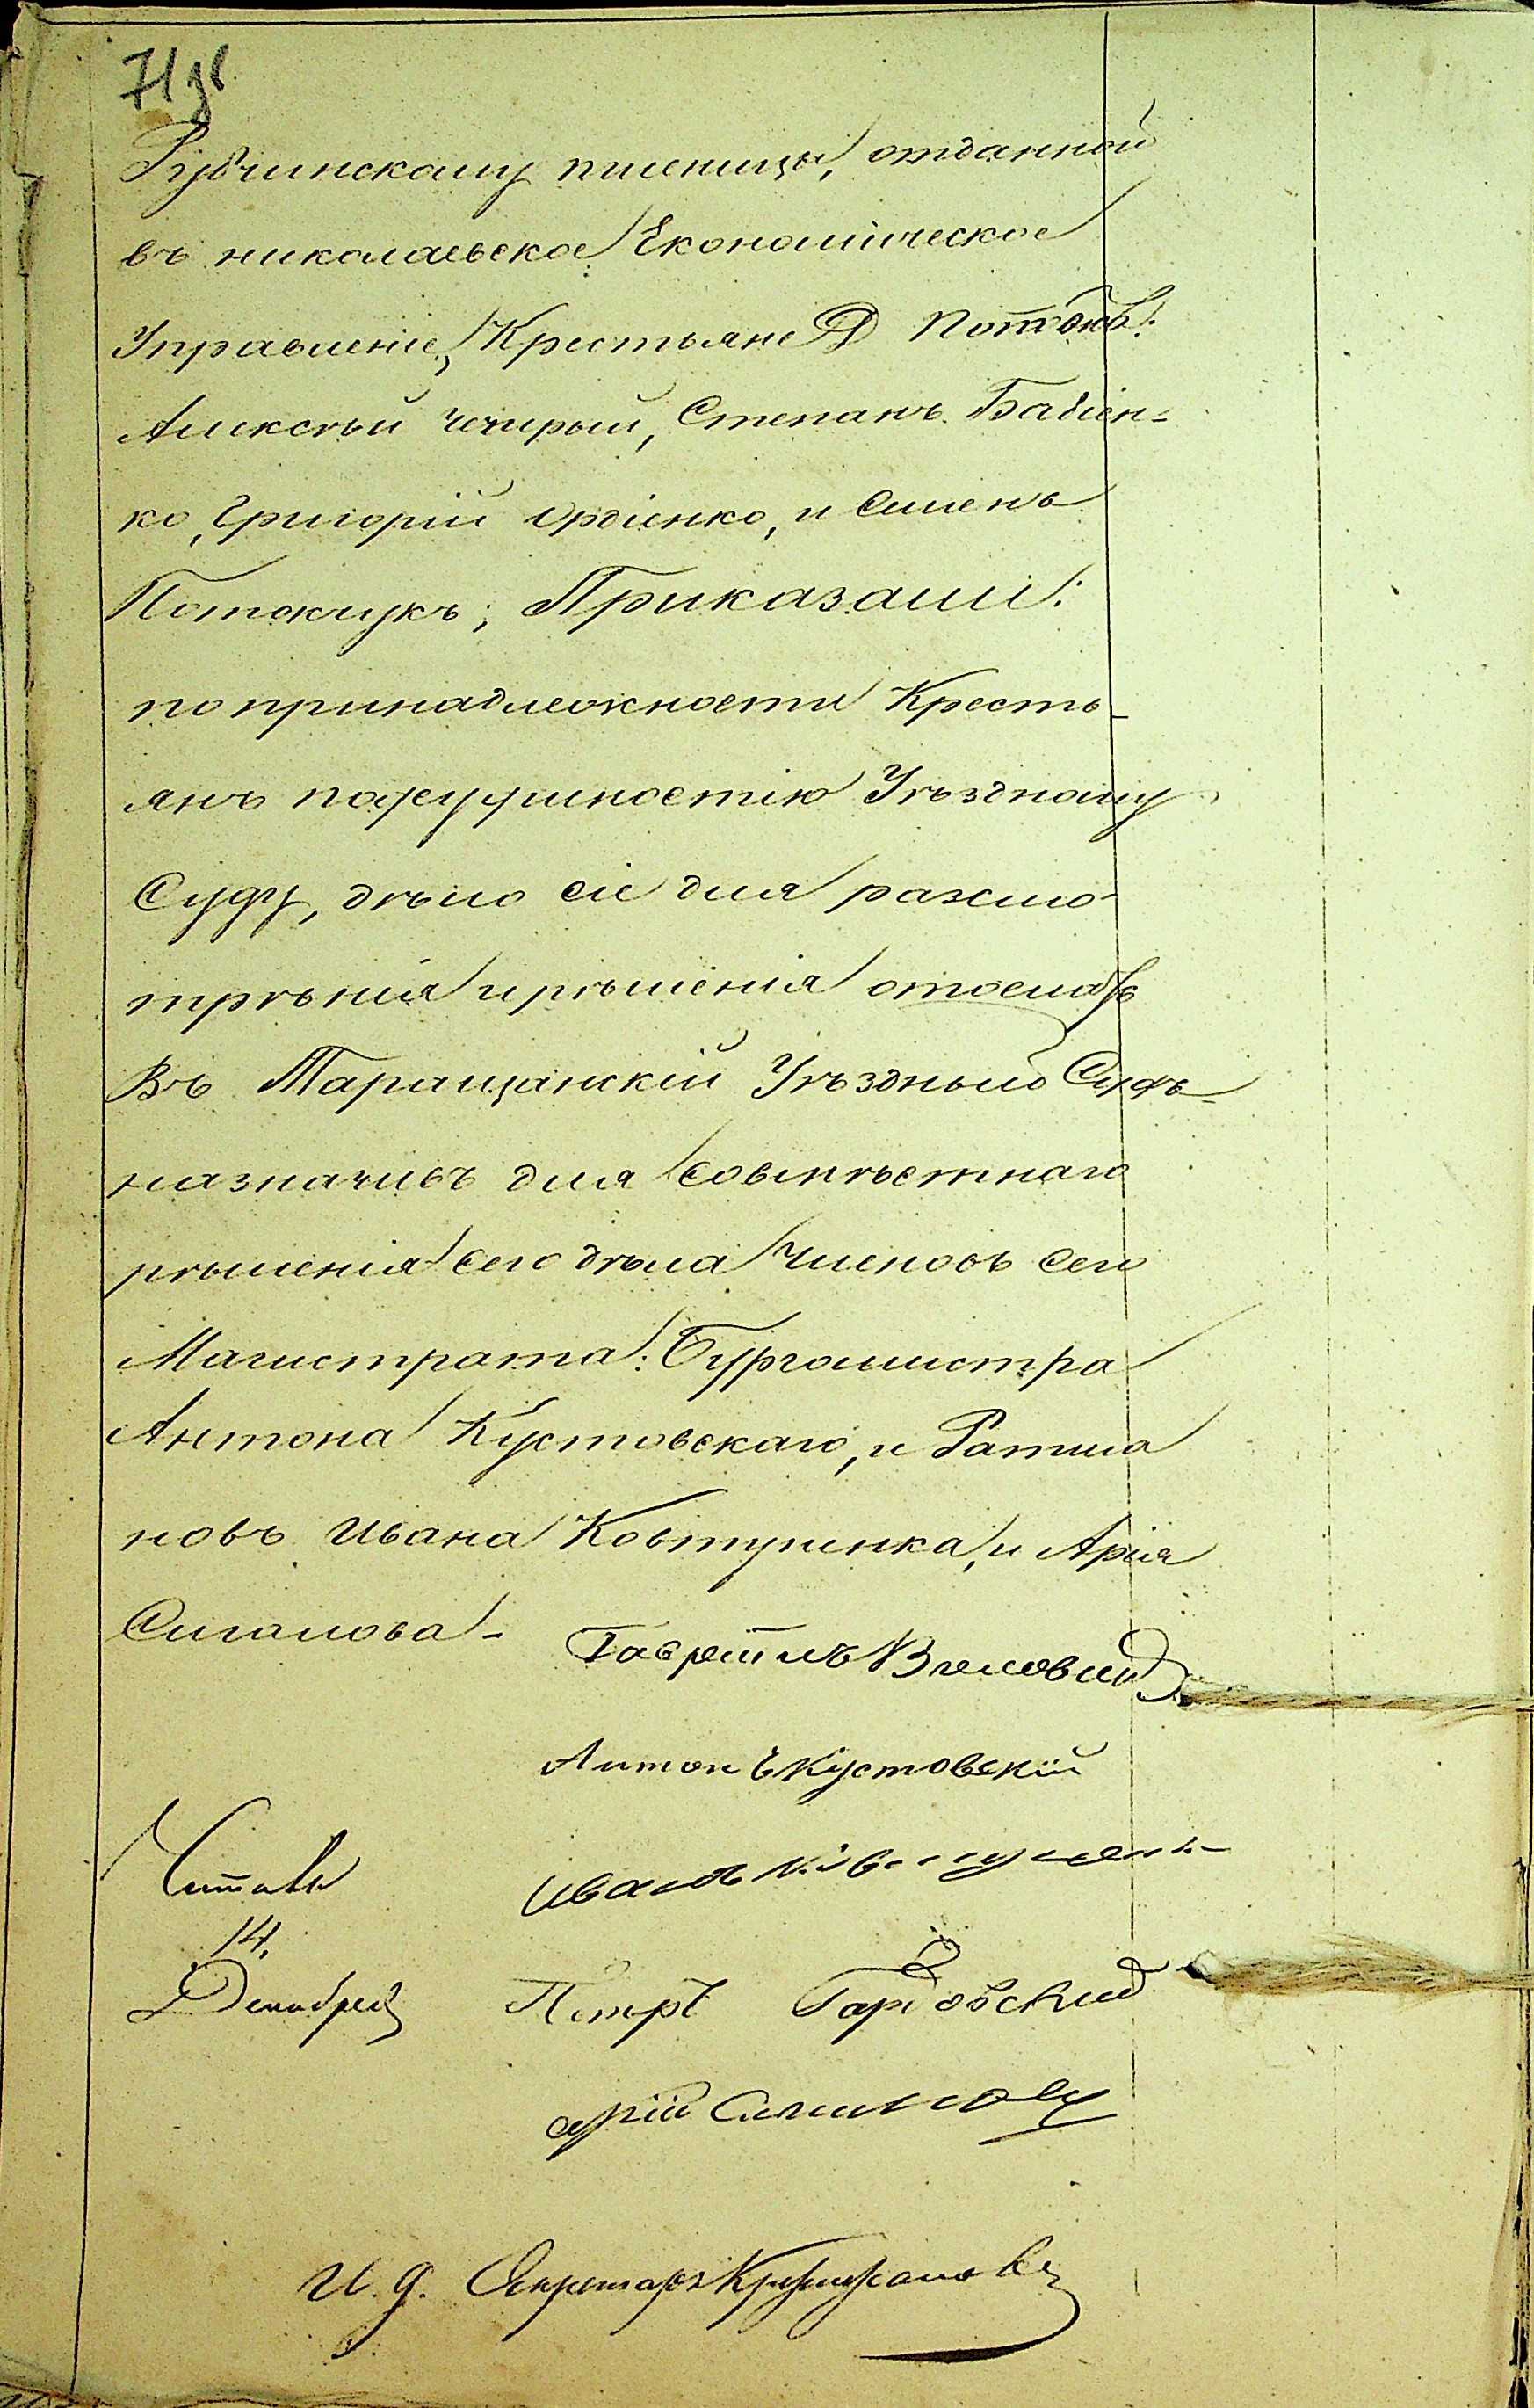 Рубчинскому пшеницы, отданной
въ николаевское Економическое
Управленіе, Крестьяне
Алексѣй чечирый, Степанъ Бабіен-
ко, Григорій Ордіенко, и Семенъ
Потокчукъ; Приказали:
по принадлежности Кресть-
янъ подсудимостію Уѣздному
Суду, дѣло сіе для разсмо-
трѣнія и рѣшенія отослать
Въ Таращанскій Уѣздный Судъ
назначивъ для совмѣстнаго
рѣшенія сего дѣла Членовъ сего
Магистрата: Бургомистра
Антона Кустовскаго, и Ратма
новъ Ивана Ковтуненка, и Арія
Сигалова -
Гавріилъ
Антонъ Кустовскій
Читалъ
Иванъ
14.
Декабря
Петръ
Арій Сигаловъ
И. д. Секретаря